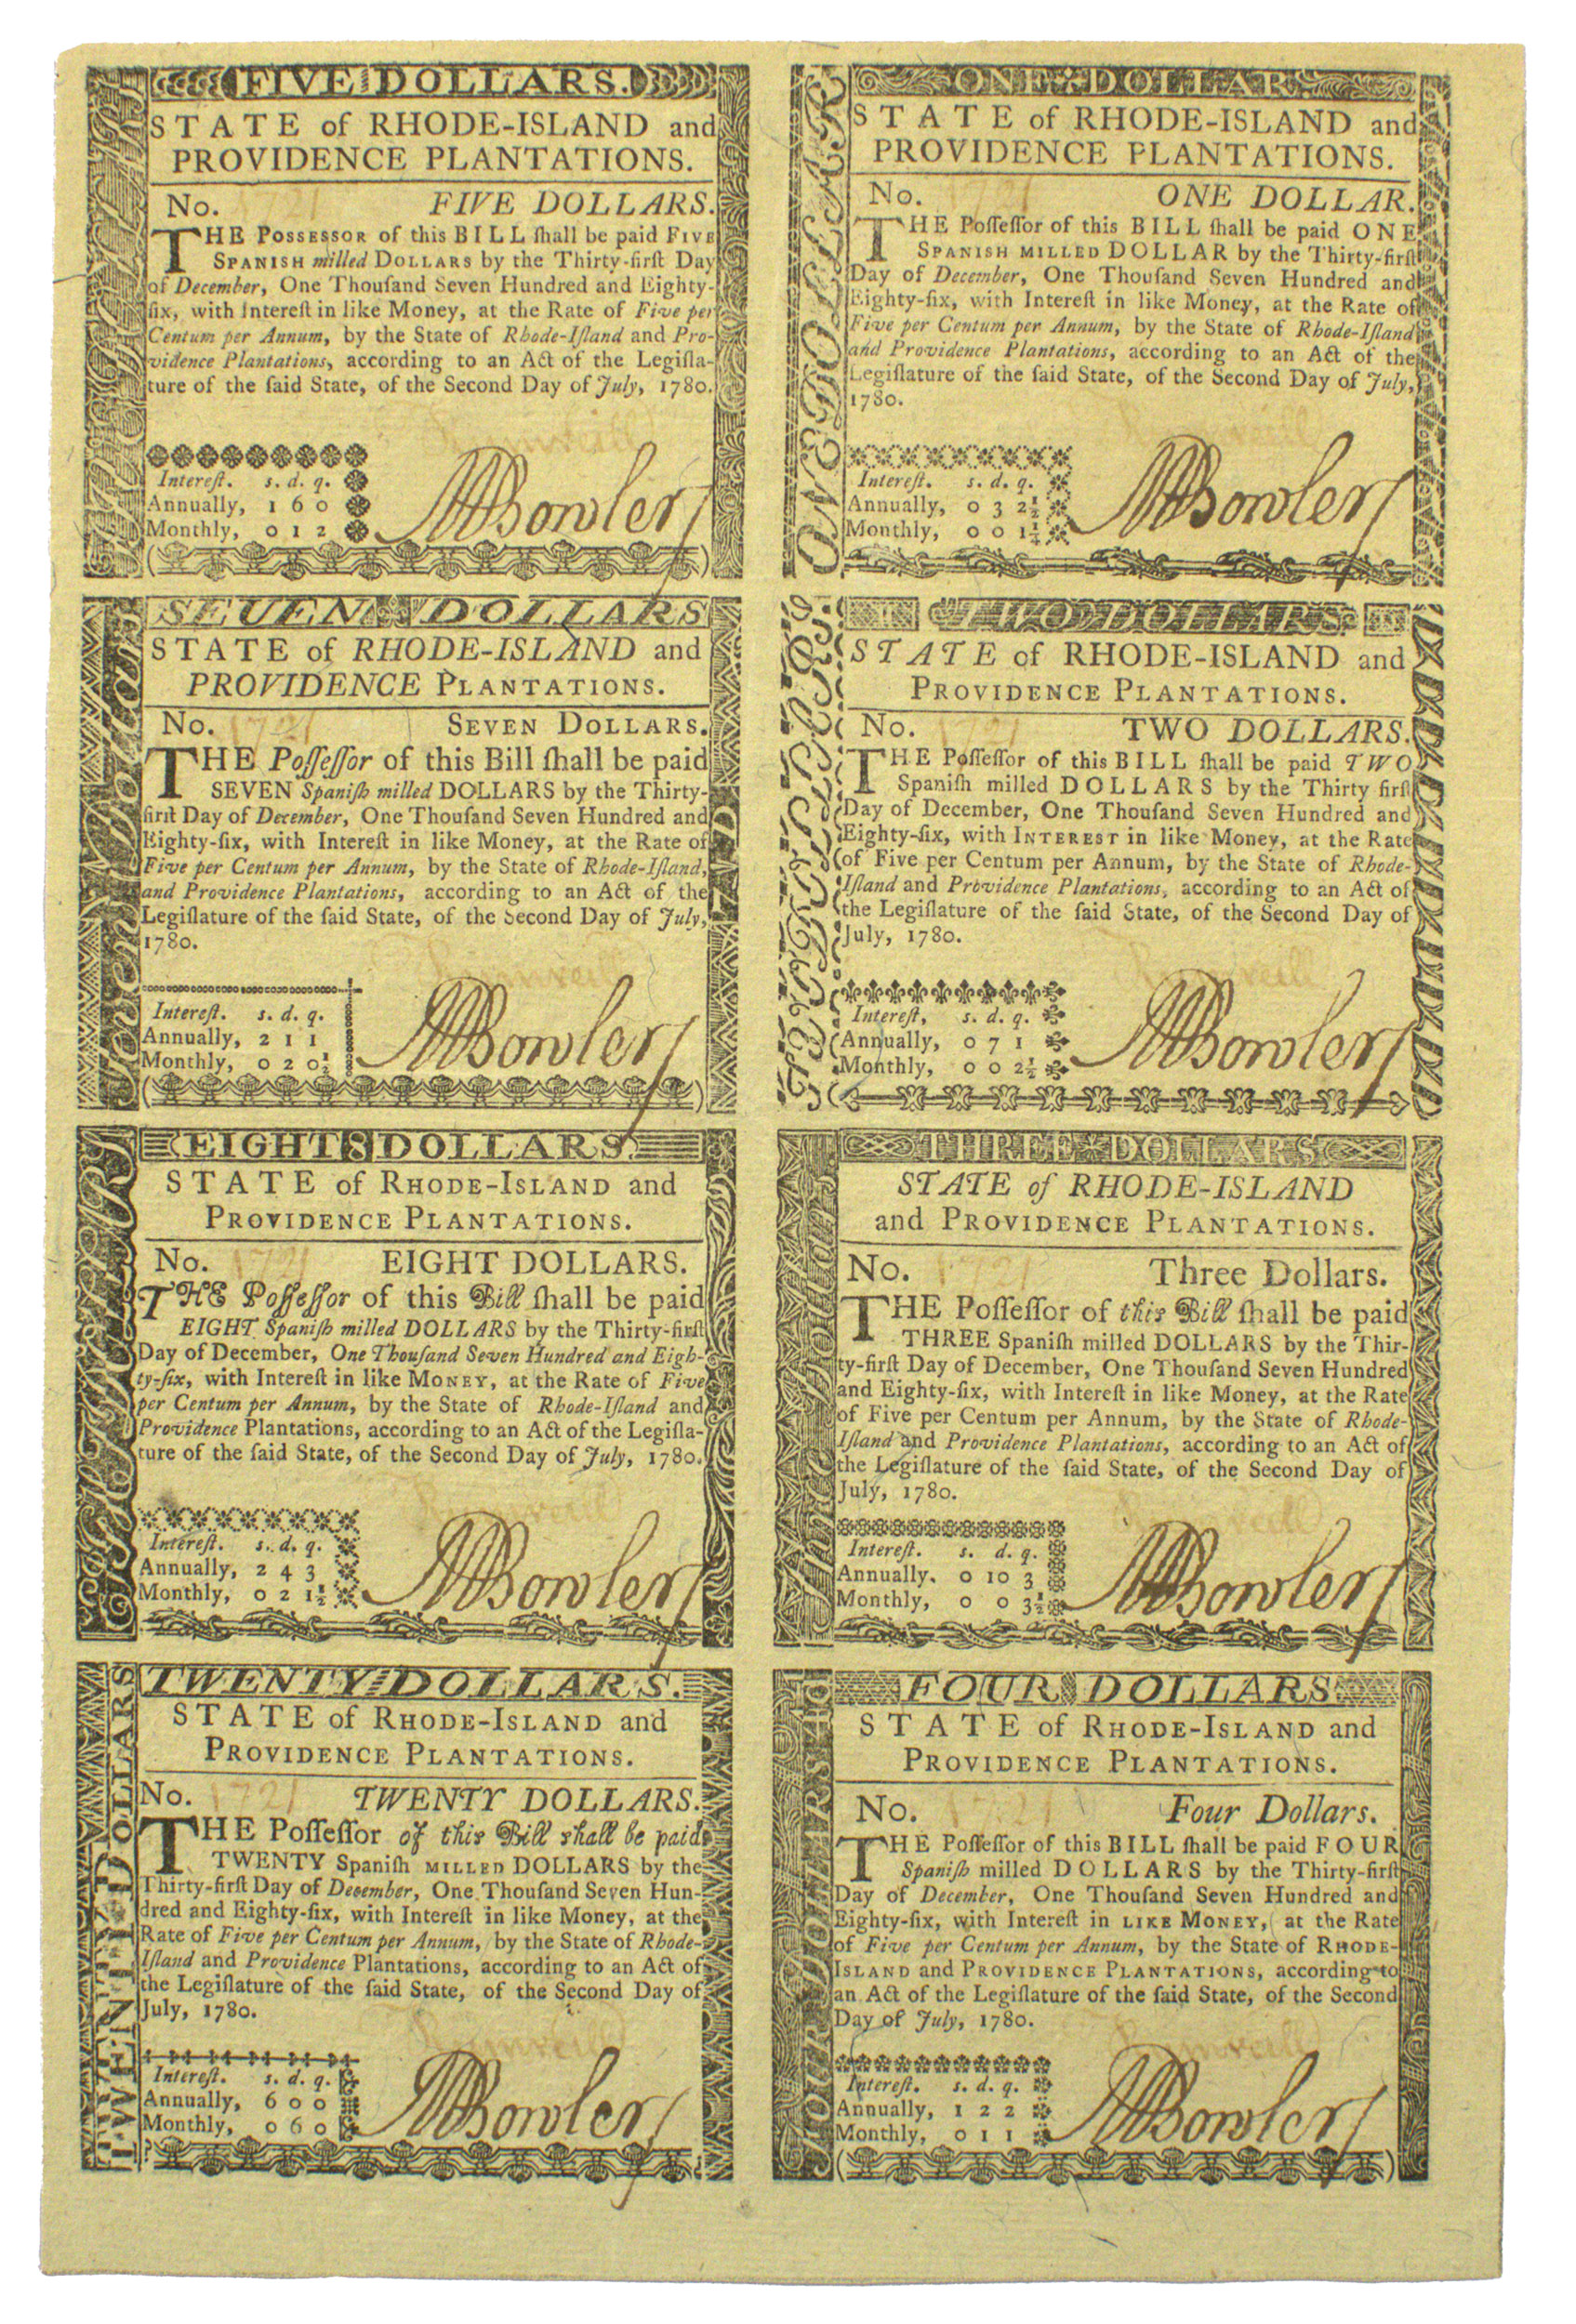 FIVE DOLLARS.
STATE of RHODE-ISLAND and
PROVIDENCE PLANTATIONS.
No. 1721 FIVE DOLLARS.
THE POSSESSOR of this BILL ſhall be paid FIVE
SPANISH milled DOLLARS by the Thirty-firſt Day
of December, One Thouſand Seven Hundred and Eighty-
ſix, with Intereſt in like Money, at the Rate of Five per
Centum per Annum, by the State of Rhode-Iſland and Pro-
vidence Plantations, according to an Act of the Legiſla-
ture of the ſaid State, of the Second Day of July, 1780.
Intereſt. s. d. q.
Annually, 1 6 0
Monthly, 0 1 2
Bowler
ONE DOLLAR
ONE DOLLAR
STATE of RHODE-ISLAND and
PROVIDENCE PLANTATIONS.
No. 1721 ONE DOLLAR.
THE Poſſeſſor of this BILL ſhall be paid ONE
SPANISH MILLED DOLLAR by the Thirty-firſt
Day of December, One Thouſand Seven Hundred and
Eighty-ſix, with Intereſt in like Money, at the Rate of
Five per Centum per Annum, by the State of Rhode-Iſland
and Providence Plantations, according to an Act of the
Legiſlature of the ſaid State, of the Second Day of July,
1780.
Intereſt. s. d. q.
Annually, 0 3 2½
Monthly, 0 0 1¼
Bowler
SEVEN DOLLARS
STATE of RHODE-ISLAND and
PROVIDENCE PLANTATIONS.
No. 1721 SEVEN DOLLARS.
THE Poſſeſſor of this Bill ſhall be paid
SEVEN Spaniſh milled DOLLARS by the Thirty-
firſt Day of December, One Thouſand Seven Hundred and
Eighty-ſix, with Intereſt in like Money, at the Rate of
Five per Centum per Annum, by the State of Rhode-Iſland,
and Providence Plantations, according to an Act of the
Legiſlature of the ſaid State, of the Second Day of July,
1780.
Intereſt. s. d. q.
Annually, 2 1 1
Monthly, 0 2 0½
Bowler
TWO DOLLARS
STATE of RHODE-ISLAND and
PROVIDENCE PLANTATIONS.
No. 1721 TWO DOLLARS.
THE Poſſeſſor of this BILL ſhall be paid TWO
Spaniſh milled DOLLARS by the Thirty firſt
Day of December, One Thouſand Seven Hundred and
Eighty-ſix, with INTEREST in like Money, at the Rate
of Five per Centum per Annum, by the State of Rhode-
Iſland and Providence Plantations, according to an Act of
the Legiſlature of the ſaid State, of the Second Day of
July, 1780.
Intereſt, s. d. q.
Annually, 0 7 1
Monthly, 0 0 2½
Bowler
EIGHT 8 DOLLARS.
STATE of RHODE-ISLAND and
PROVIDENCE PLANTATIONS.
No. 1721 EIGHT DOLLARS.
THE Poſſeſſor of this Bill ſhall be paid
EIGHT Spaniſh milled DOLLARS by the Thirty-firſt
Day of December, One Thouſand Seven Hundred and Eigh-
ty-ſix, with Intereſt in like MONEY, at the Rate of Five
per Centum per Annum, by the State of Rhode-Iſland and
Providence Plantations, according to an Act of the Legiſla-
ture of the ſaid State, of the Second Day of July, 1780.
Intereſt. s. d. q.
Annually, 2 4 3
Monthly, 0 2 1½
Bowler
THREE DOLLARS
STATE of RHODE-ISLAND
and PROVIDENCE PLANTATIONS.
No. 1721 Three Dollars.
THE Poſſeſſor of this Bill ſhall be paid
THREE Spaniſh milled DOLLARS by the Thir-
ty-firſt Day of December, One Thouſand Seven Hundred
and Eighty-ſix, with Intereſt in like Money, at the Rate
of Five per Centum per Annum, by the State of Rhode-
Iſland and Providence Plantations, according to an Act of
the Legiſlature of the ſaid State, of the Second Day of
July, 1780.
Intereſt. s. d. q.
Annually. 0 10 3
Monthly, 0 0 3½
Bowler
TWENTY DOLLARS.
TWENTY DOLLARS
STATE of RHODE-ISLAND and
PROVIDENCE PLANTATIONS.
No. 1721 TWENTY DOLLARS.
THE Poſſeſſor of this Bill shall be paid
TWENTY Spaniſh MILLED DOLLARS by the
Thirty-firſt Day of December, One Thouſand Seven Hun-
dred and Eighty-ſix, with Intereſt in like Money, at the
Rate of Five per Centum per Annum, by the State of Rhode-
Iſland and Providence Plantations, according to an Act of
the Legiſlature of the ſaid State, of the Second Day of
July, 1780.
Intereſt. s. d. q.
Annually, 6 0 0
Monthly, 0 6 0
Bowler
FOUR DOLLARS
STATE of RHODE-ISLAND and
PROVIDENCE PLANTATIONS.
No. 1721 Four Dollars.
THE Poſſeſſor of this BILL ſhall be paid FOUR
Spaniſh milled DOLLARS by the Thirty-firſt
Day of December, One Thouſand Seven Hundred and
Eighty-ſix, with Intereſt in LIKE MONEY, at the Rate
of Five per Centum per Annum, by the State of RHODE-
ISLAND and PROVIDENCE PLANTATIONS, according to
an Act of the Legiſlature of the ſaid State, of the Second
Day of July, 1780.
Intereſt. s. d. q.
Annually, 1 2 2
Monthly, 0 1 1
Bowler